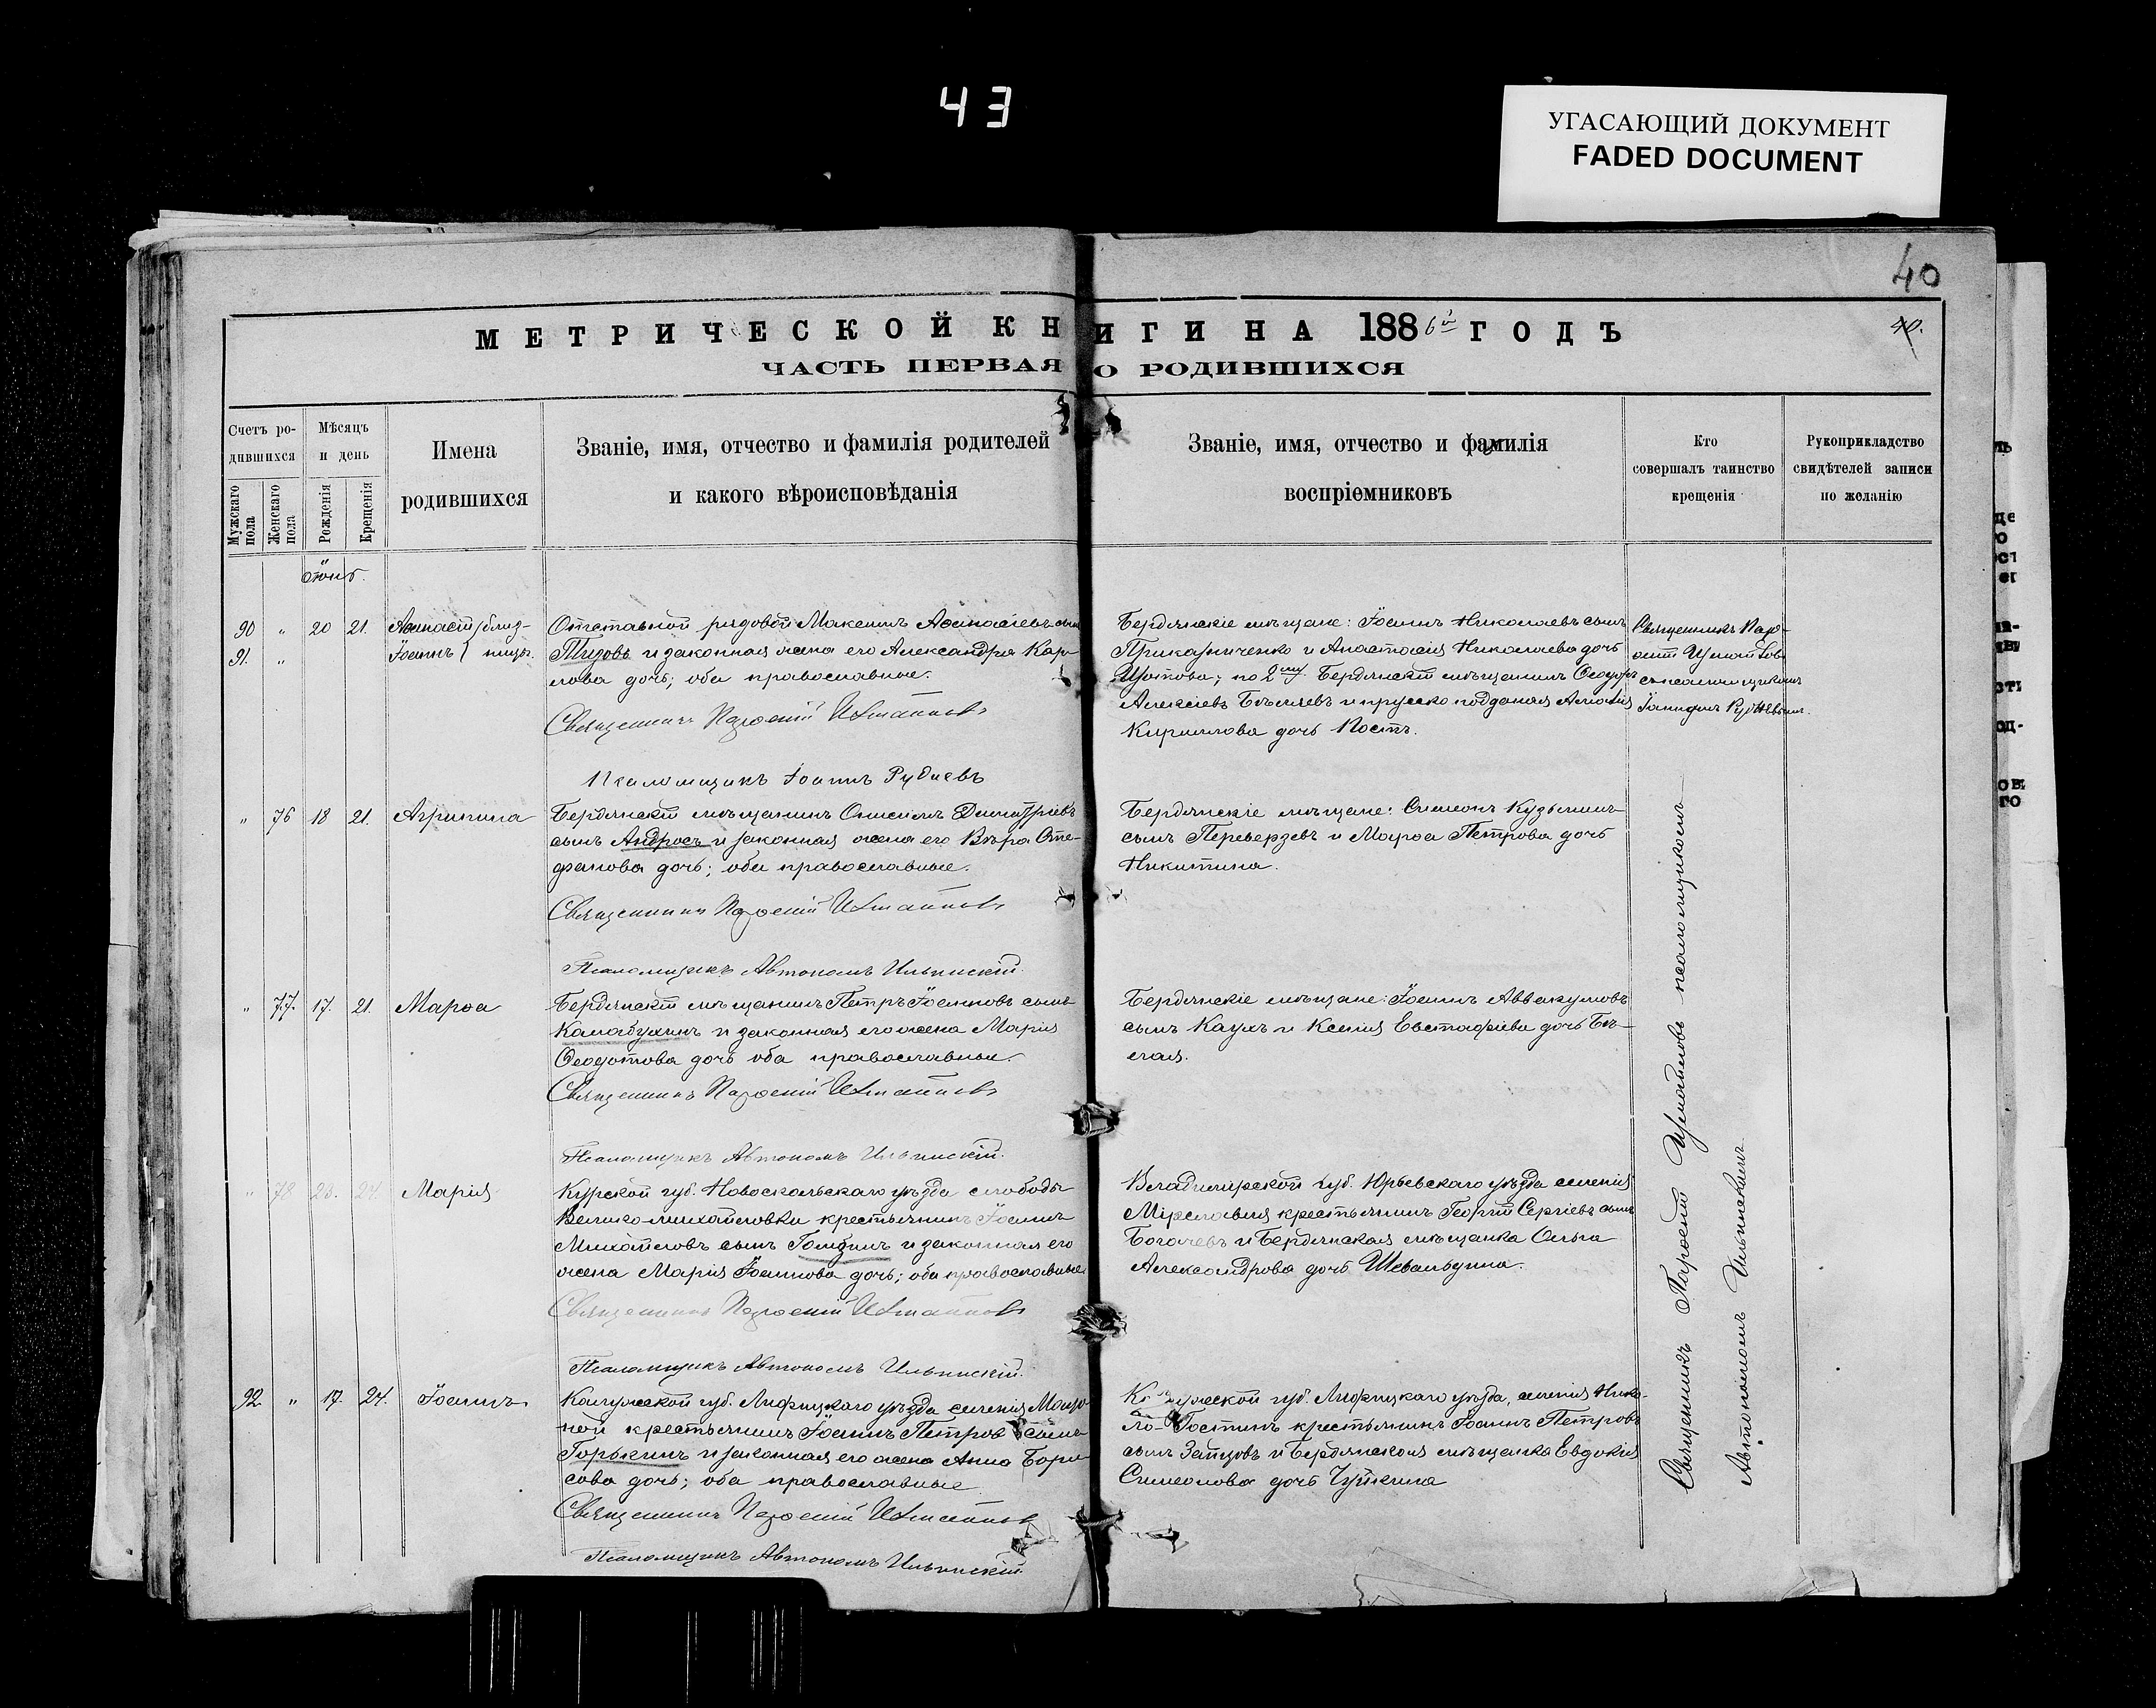 43
УГАСАЮЩИЙ ДОКУМЕНТ
FADED DOCUMENT
40
МЕТРИЧЕСКОЙ КНИГИ НА 1886й ГОДЪ
40.
ЧАСТЬ ПЕРВАЯ О РОДИВШИХСЯ
Счетъ ро-
дившихся
Мужскаго пола
Женскаго пола
Мѣсяцъ
и день
Рожденія
Крещенія
Имена
родившихся
Званіе, имя, отчество и фамилія родителей
и какого вѣроисповѣданія
Званіе, имя, отчество и фамилія
воспріемниковъ
Кто
совершалъ таинство
крещенія
Рукоприкладство
свидѣтелей записи
по желанію
90 " 20 21. близ-
91. " Іоаннъ ницы.
Отставной рядовой Максимъ Аѳанасіевъ сынъ
и законная жена его Александра Кар-
пова дочь; оба православные.
Священникъ Парѳеній
Псаломщикъ Іоаннъ
Бердянскіе мѣщане: Іоаннъ Николаевъ сынъ
Приказниченко и Анастасія Николаева дочь
по 2му Бердянскій мѣщанинъ Ѳеодоръ
Алексіевъ и прусско подданая
Кириллова дочь Постъ.
Священникъ Пар-
ѳеній
съ псаломщикомъ
" 76 18 21. Агрипина
Бердянскій мѣщанинъ Онисимъ Димитріевъ
сынъ Андросъ и законная жена его Вѣра Сте-
фанова дочь; оба православные.
Священникъ Парѳеній
Псаломщикъ Автономъ Ильинскій.
Бердянскіе мѣщане: Симеонъ Кузьминъ
сынъ Переверзевъ и Марѳа Петрова дочь
Никитина.
" 77. 17. 21. Марѳа
Бердянскій мѣщанинъ Петръ Іоанновъ сынъ
Калабухинъ и законная его жена Марія
Ѳеодотова дочь оба православные.
Священникъ Парѳеній
Псаломщикъ Автономъ Ильинскій.
Бердянскіе мѣщане: Іоаннъ Аввакумовъ
сынъ и Ксенія Евстафіева дочь Бѣ-
лая.
" 78 23. 24. Марія
Курской губ. Новоскольскаго уѣзда слободы
Велико-михайловки крестьянинъ Іоаннъ
Михайловъ сынъ и законная его
жена Марія Іоаннова дочь; оба православные
Священникъ Парѳеній
Псаломщикъ Автономъ Ильинскій.
Владимірской губ. Юрьевскаго уѣзда селенія
крестьянинъ Георгій Сергіевъ сынъ
Богачевъ и Бердянская мѣщанка Ольга
Александрова дочь Шевальдина.
92 " 17. 24. Іоаннъ
Калужской губ. уѣзда селенія
крестьянинъ Іоаннъ Петровъ сынъ
Горькинъ и законная его жена Анна Бори-
сова дочь; оба православные
Священникъ Парѳеній
Псаломщикъ Автономъ Ильинскій.
губ. уѣзда, селенія Нико-
крестьянинъ Іоаннъ Петровъ
сынъ Зайцовъ и Бердянская мѣщанка Евдокія
Симеонова дочь
Священникъ Парѳеній псаломщикомъ
Автономомъ Ильинскимъ